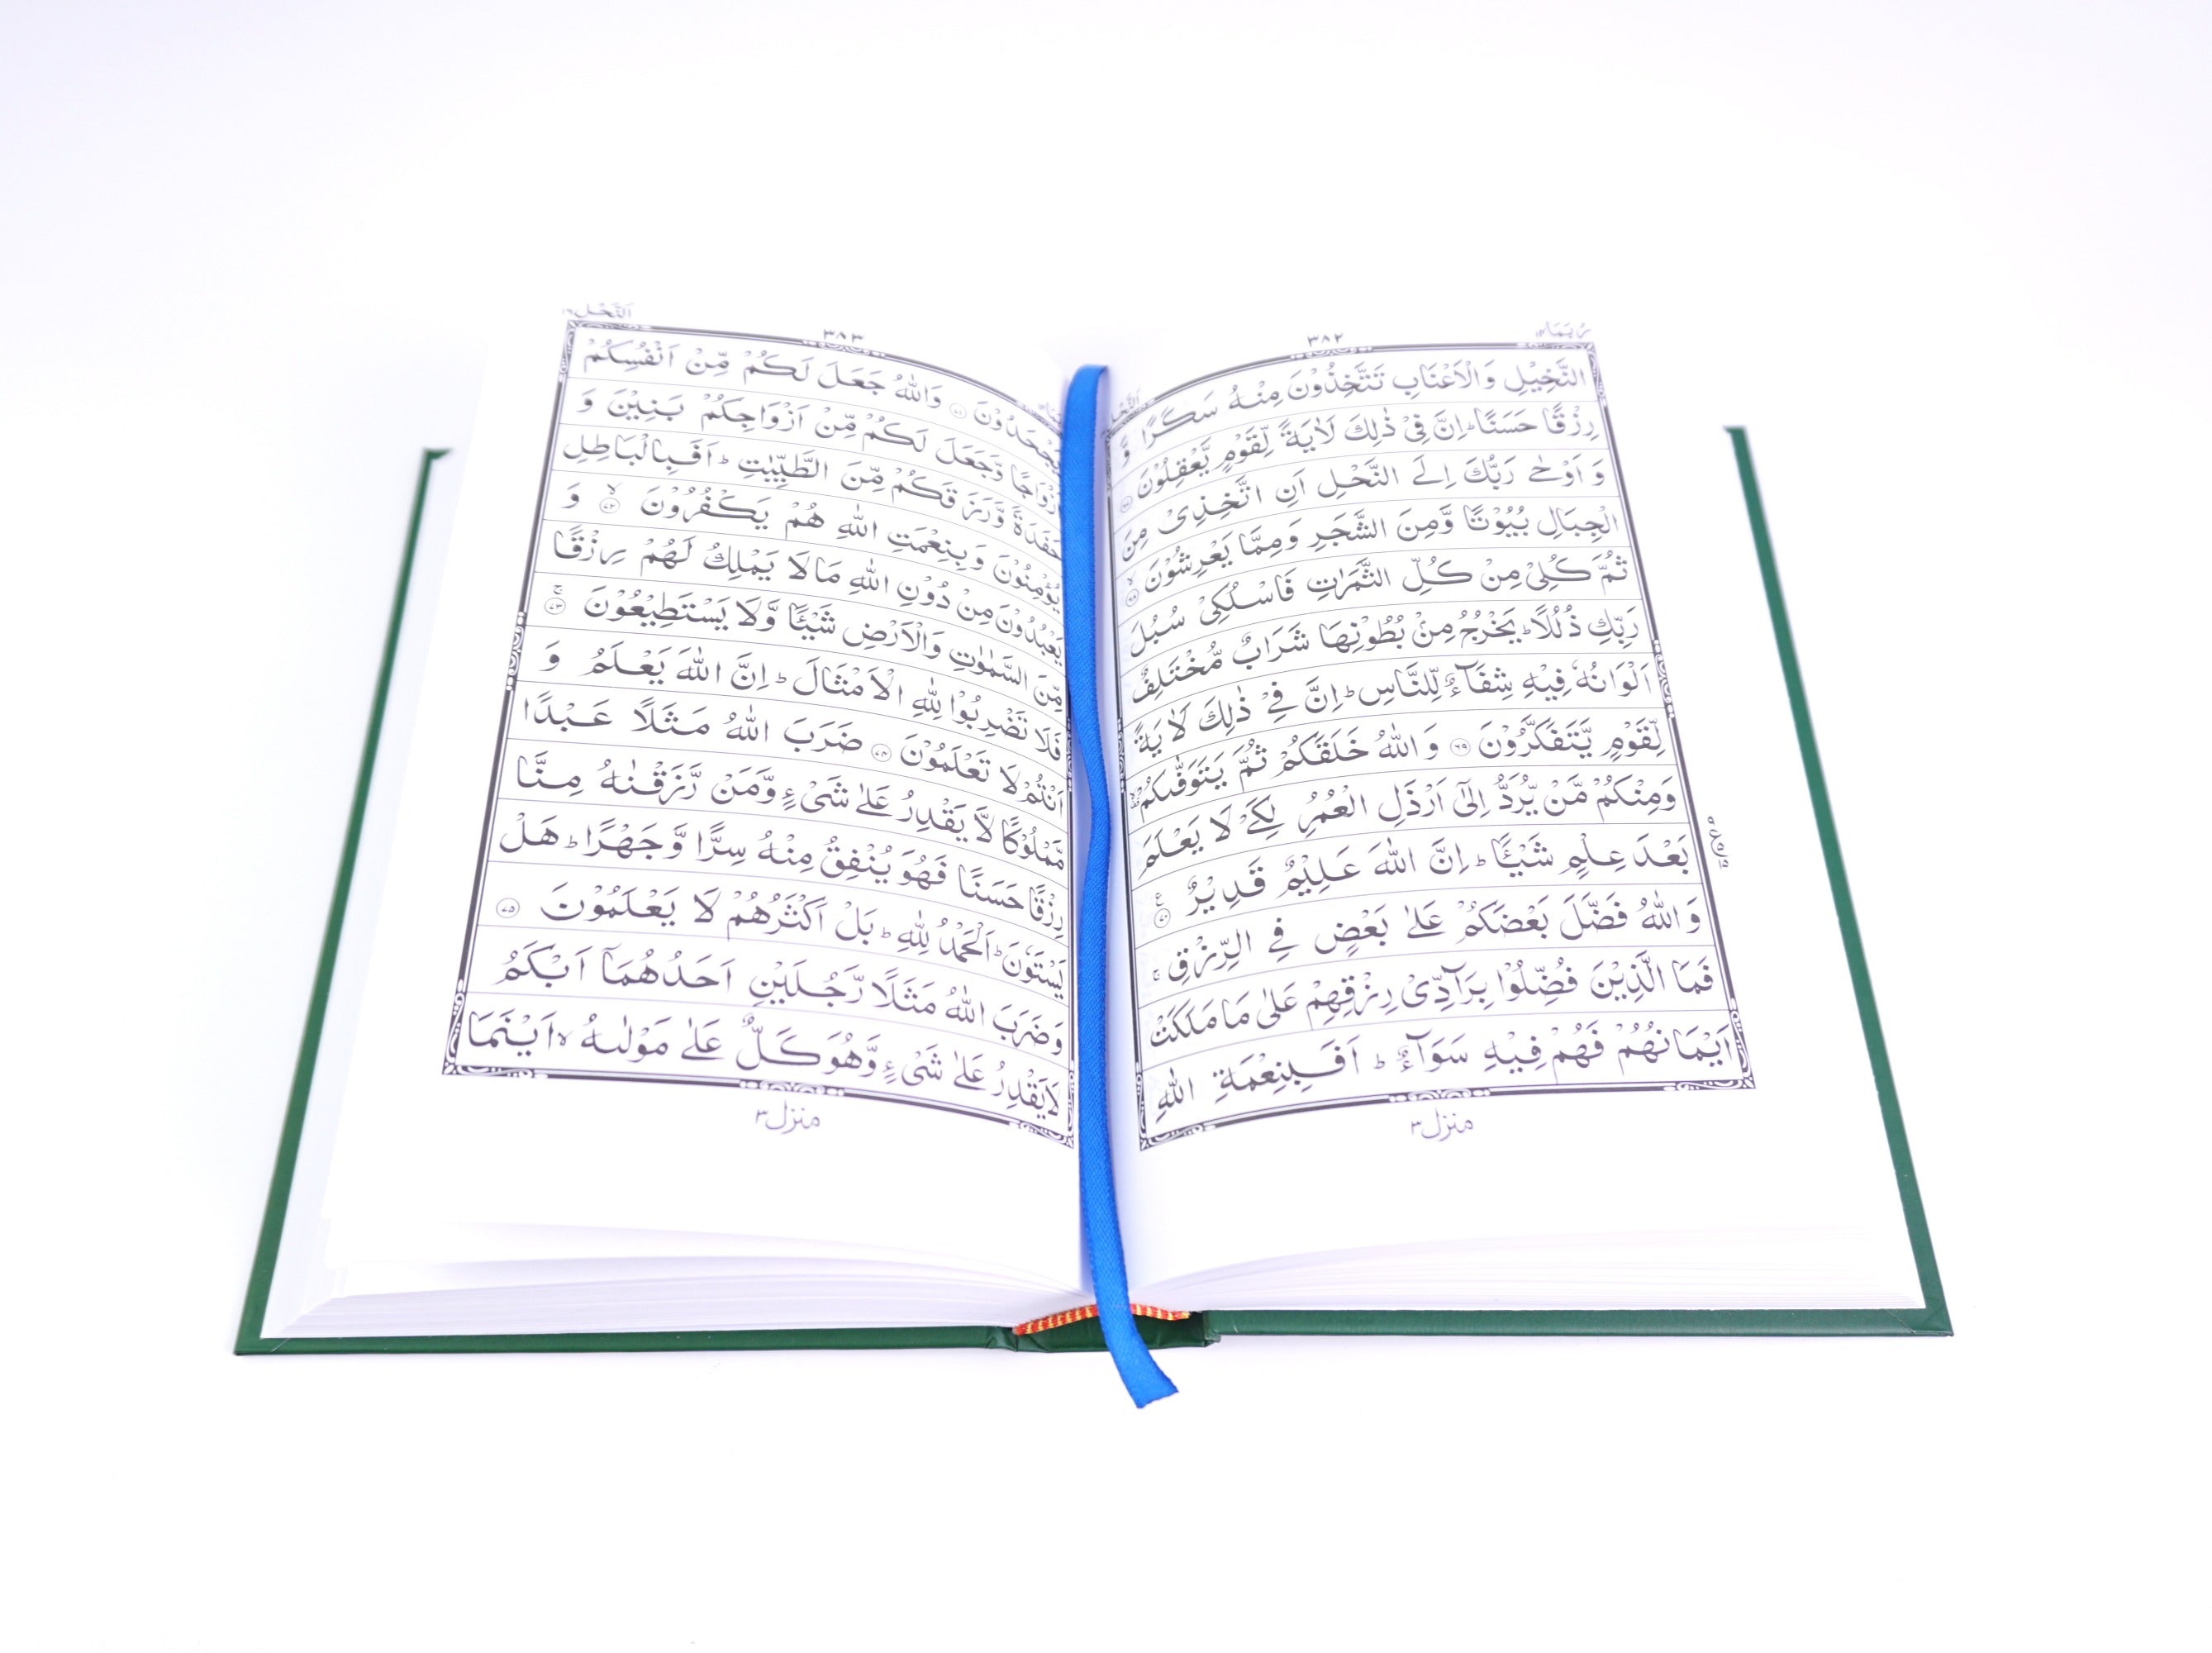 رُبَمَا ١٤
٣٨٢
النَّحْل
النَّخِيْلِ وَالْاَعْنَابِ تَتَّخِذُوْنَ مِنْهُ سَكَرًا وَّ
رِزْقًا حَسَنًا ؕ اِنَّ فِىْ ذٰلِكَ لَاٰيَةً لِّقَوْمٍ يَّعْقِلُوْنَ ۝۶۷
وَ اَوْحٰى رَبُّكَ اِلَى النَّحْلِ اَنِ اتَّخِذِىْ مِنَ
الْجِبَالِ بُيُوْتًا وَّمِنَ الشَّجَرِ وَمِمَّا يَعْرِشُوْنَ ۝۶۸ۙ
ثُمَّ كُلِىْ مِنْ كُلِّ الثَّمَرٰتِ فَاسْلُكِىْ سُبُلَ
رَبِّكِ ذُلُلًا ؕ يَخْرُجُ مِنْۢ بُطُوْنِهَا شَرَابٌ مُّخْتَلِفٌ
اَلْوَانُهٗ فِيْهِ شِفَآءٌ لِّلنَّاسِ ؕ اِنَّ فِىْ ذٰلِكَ لَاٰيَةً
لِّقَوْمٍ يَّتَفَكَّرُوْنَ ۝۶۹ وَ اللّٰهُ خَلَقَكُمْ ثُمَّ يَتَوَفّٰٮكُمْ ۙ
وَمِنْكُمْ مَّنْ يُّرَدُّ اِلٰٓى اَرْذَلِ الْعُمُرِ لِكَىْ لَا يَعْلَمَ
بَعْدَ عِلْمٍ شَيْـًٔا ؕ اِنَّ اللّٰهَ عَلِيْمٌ قَدِيْرٌ ۝۷۰ ع
وَ اللّٰهُ فَضَّلَ بَعْضَكُمْ عَلٰى بَعْضٍ فِى الرِّزْقِ ۚ
فَمَا الَّذِيْنَ فُضِّلُوْا بِرَآدِّىْ رِزْقِهِمْ عَلٰى مَا مَلَكَتْ
اَيْمَانُهُمْ فَهُمْ فِيْهِ سَوَآءٌ ؕ اَفَبِنِعْمَةِ اللّٰهِ
منزل ٣
اَلنَّحْل ١٦
٣٨٣
يَجْحَدُوْنَ ۝۷۱ وَاللّٰهُ جَعَلَ لَكُمْ مِّنْ اَنْفُسِكُمْ
اَزْوَاجًا وَّجَعَلَ لَكُمْ مِّنْ اَزْوَاجِكُمْ بَنِيْنَ وَ
حَفَدَةً وَّرَزَقَكُمْ مِّنَ الطَّيِّبٰتِ ؕ اَفَبِالْبَاطِلِ
يُؤْمِنُوْنَ وَبِنِعْمَتِ اللّٰهِ هُمْ يَكْفُرُوْنَ ۝۷۲ۙ وَ
يَعْبُدُوْنَ مِنْ دُوْنِ اللّٰهِ مَا لَا يَمْلِكُ لَهُمْ رِزْقًا
مِّنَ السَّمٰوٰتِ وَالْاَرْضِ شَيْـًٔا وَّلَا يَسْتَطِيْعُوْنَ ۝۷۳ۚ
فَلَا تَضْرِبُوْا لِلّٰهِ الْاَمْثَالَ ؕ اِنَّ اللّٰهَ يَعْلَمُ وَ
اَنْتُمْ لَا تَعْلَمُوْنَ ۝۷۴ ضَرَبَ اللّٰهُ مَثَلًا عَبْدًا
مَّمْلُوْكًا لَّا يَقْدِرُ عَلٰى شَىْءٍ وَّمَنْ رَّزَقْنٰهُ مِنَّا
رِزْقًا حَسَنًا فَهُوَ يُنْفِقُ مِنْهُ سِرًّا وَّجَهْرًا ؕ هَلْ
يَسْتَوٗنَ ؕ اَلْحَمْدُ لِلّٰهِ ؕ بَلْ اَكْثَرُهُمْ لَا يَعْلَمُوْنَ ۝۷۵
وَضَرَبَ اللّٰهُ مَثَلًا رَّجُلَيْنِ اَحَدُهُمَاۤ اَبْكَمُ
لَا يَقْدِرُ عَلٰى شَىْءٍ وَّهُوَ كَلٌّ عَلٰى مَوْلٰٮهُ ۙ اَيْنَمَا
منزل ٣